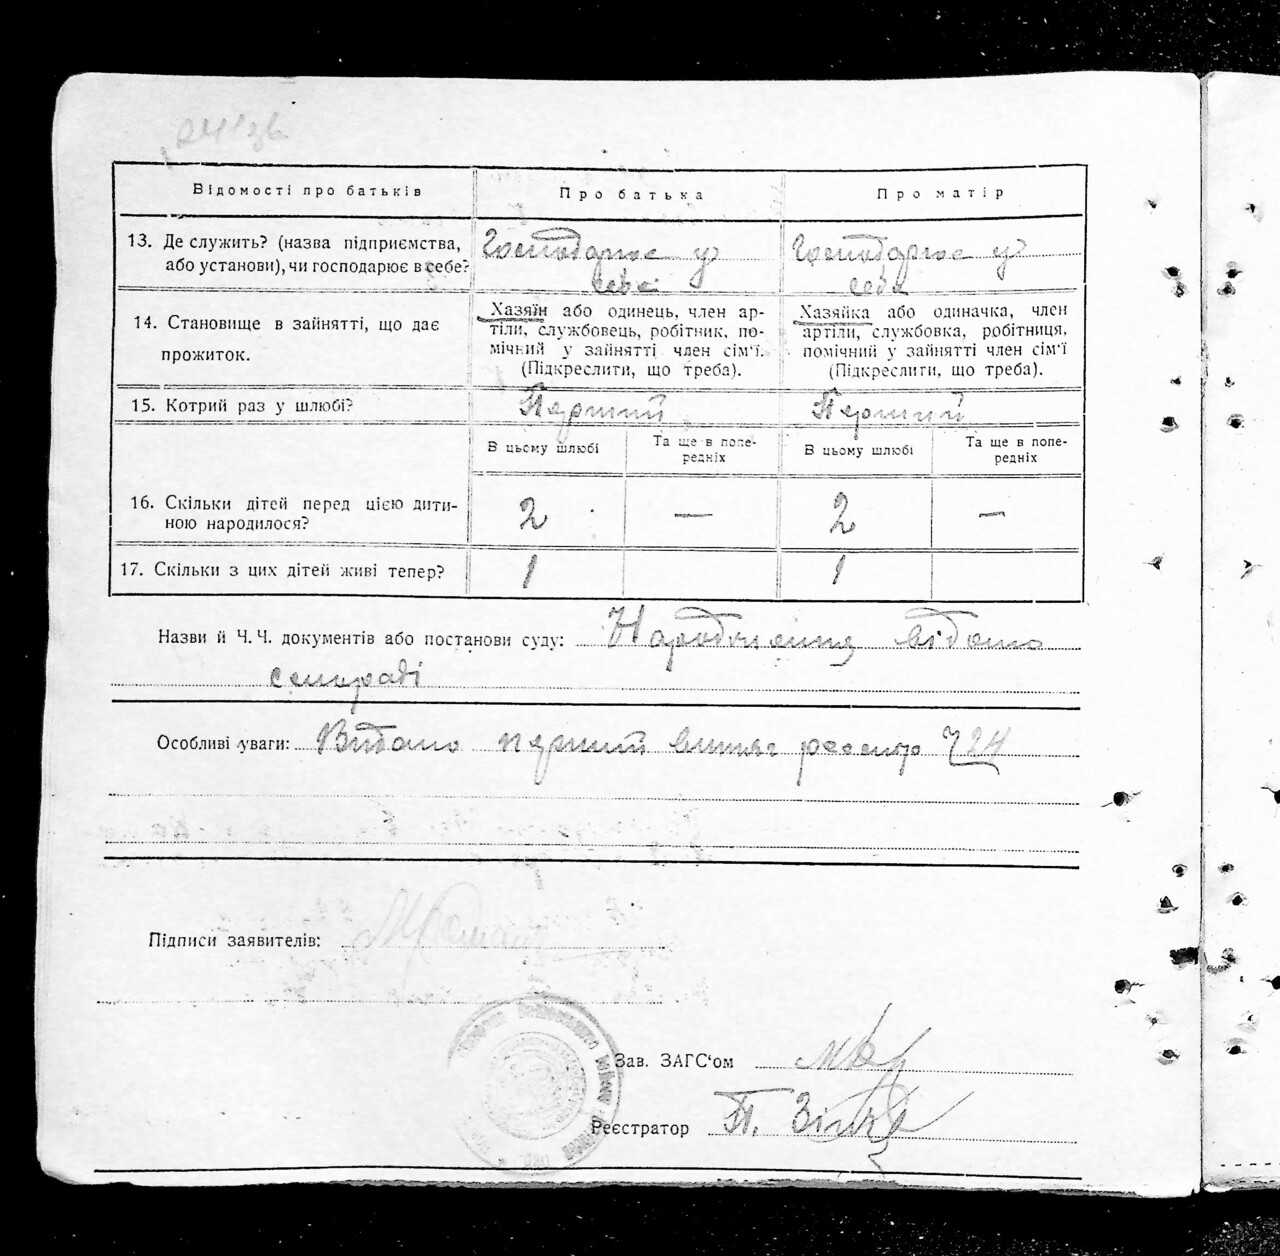 241зв
Відомості про батьків Про батька Про матір
13. Де служить? (назва підприємства, або установи), чи господарює в себе?
Господарює у себе
Господарює у себе
14. Становище в зайнятті, що дає прожиток.
Хазяїн або одинець, член ар-
тіли, службовець, робітник, по-
мічний у зайнятті член сім'ї.
(Підкреслити, що треба).
Хазяйка або одиначка, член
артіли, службовка, робітниця,
помічний у зайнятті член сім'ї
(Підкреслити, що треба).
15. Котрий раз у шлюбі? Перший Перший
В цьому шлюбі Та ще в попе-редніх В цьому шлюбі Та ще в попе-редніх
16. Скільки дітей перед цією дити-
ною народилося? 2 — 2 —
17. Скільки з цих дітей живі тепер? 1 1
Назви й Ч.Ч. документів або постанови суду: Народження відомо
сельраді
Особливі уваги: Видано перший витяг реєстр 724
Підписи заявителів:
Зав. ЗАГС'ом
Реєстратор П.